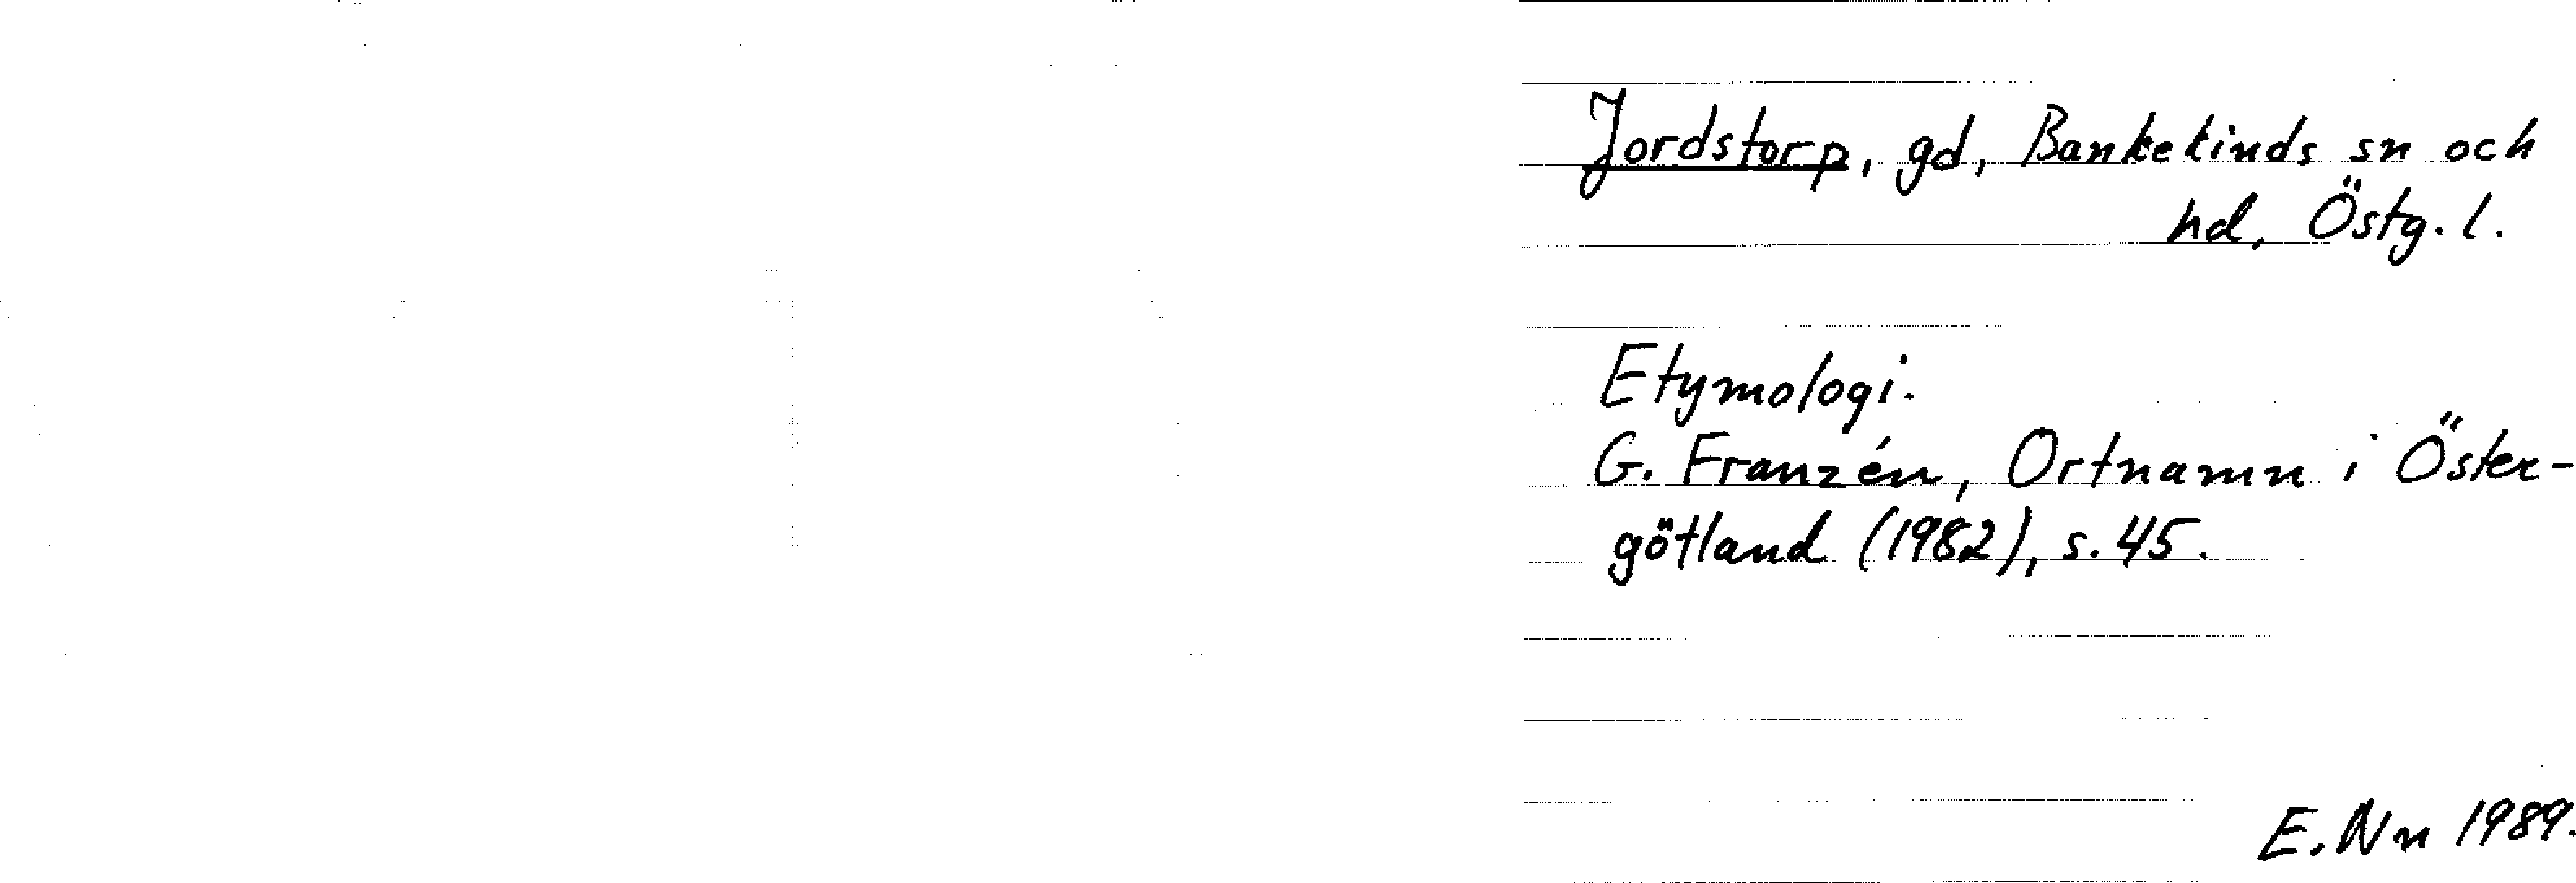 Jordstorp, gd, Bankekinds sn och
hd, Östg. l.
Etymologi.
G. Franzén, Ortnamn i Öster-
götland (1982), s. 45.
E. Nn 1989.